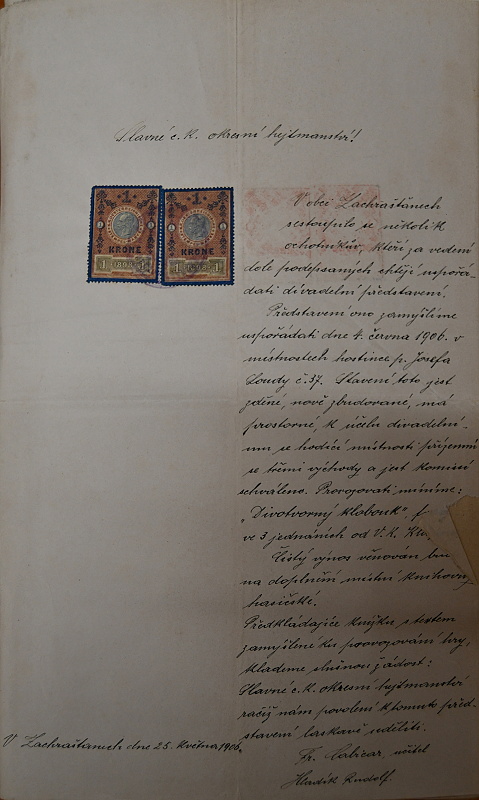 Slavné c. k. okresní hejtmanství!
1
KRONE
1 1898 1
1
KRONE
1 1898 1
V obci Zachrašťanech
sestoupilo se několik
ochotníkův, kteří za vedení
dole podepsaných chtějí uspořá-
dati divadelní představení.
Představení ono zamýšlíme
uspořádati dne 4. června 1906. v
místnostech hostince p. Josefa
Loudy č. 37. Stavení toto jest
zděné, nově zbudované, má
prostorné, k účelu divadelní-
mu se hodící místnosti přízemní
se třemi východy a jest komisí
schváleno. Provozovati míníme:
„Divotvorný klobouk“, f
ve 3 jednáních od V. K. Kli
Čistý výnos věnován bu
na doplnění místní knihovny
hasičské.
Předkládajíce knížku s textem
zamýšlené ku provozování hry,
klademe slušnou žádost:
Slavné c. k. okresní hejtmanství
račiž nám povolení k tomuto před-
stavení laskavě uděliti.
V Zachrašťanech dne 25. května 1906.
Fr. učitel
Hladík Rudolf.